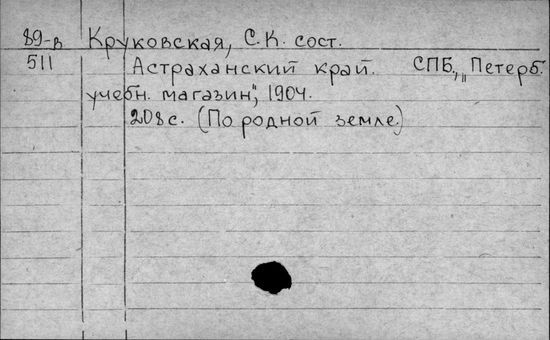 89-в Круковская, С.К. сост.
511 Астраханский край. СПБ, „Петерб.
учебн. магазин", 1904.
208 с. (По родной земле.)